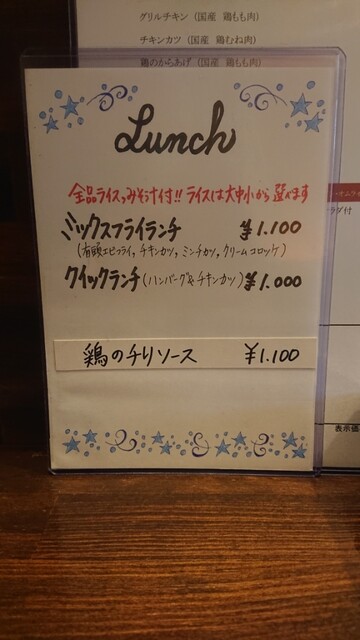 グリルチキン (国産 鶏もも肉)
チキンカツ (国産 鶏むね肉)
鶏のからあげ (国産 鶏もも肉)
Lunch
全品ライス、みそ汁付!! ライスは大中小から選べます
ミックスフライランチ ¥1.100
(有頭エビフライ, チキンカツ, ミンチカツ, クリームコロッケ)
クイックランチ (ハンバーグ&チキンカツ) ¥1.000
鶏のチリソース ¥1.100
表示価